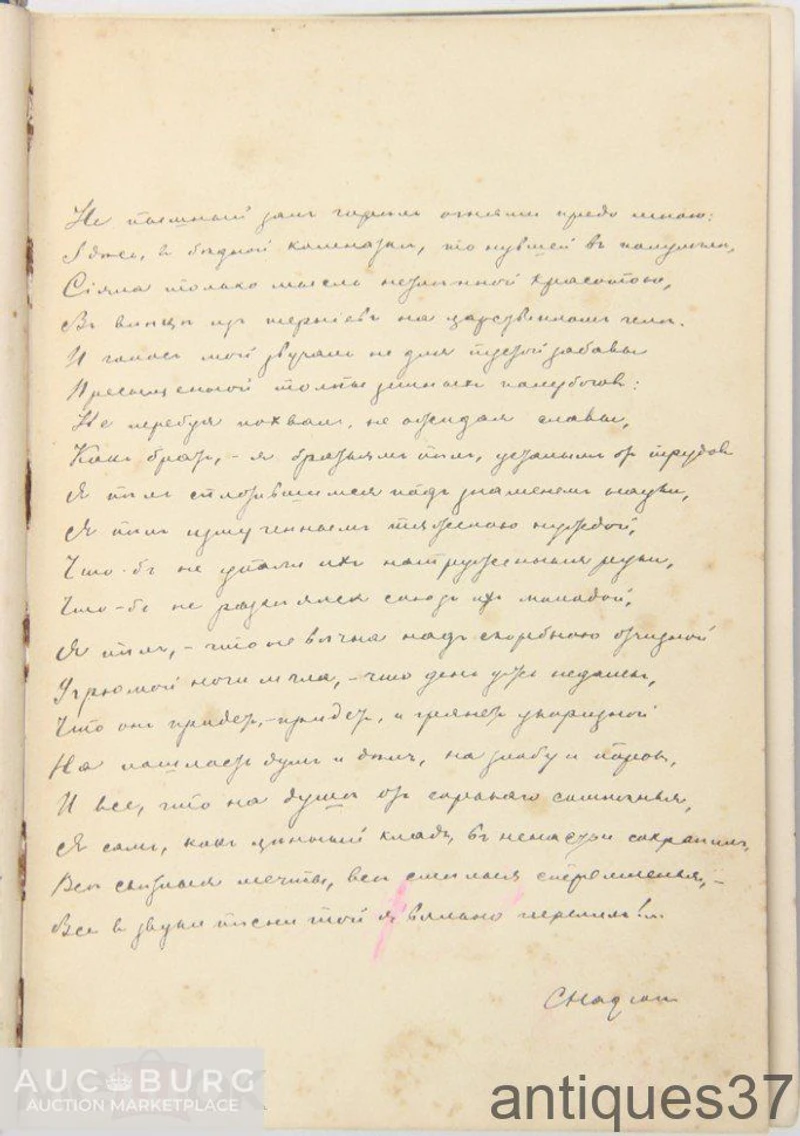 Не пышный залъ горѣлъ огнями предо мною:
Здѣсь, в бѣдной комнаткѣ, тонувшей въ полумглѣ,
Сіяла только мысль незлимой красотою,
Въ вѣнцѣ изъ терніевъ на царственномъ челѣ.
И голосъ мой звучалъ не для пустой забавы
Пресыщенной толпы земныхъ полубоговъ:
Не требуя похвалъ, не ожидая славы,
Какъ братъ, - я братьямъ пѣлъ, усталымъ от трудовъ
Я пѣлъ сплотившимся подъ знаменемъ науки,
Я пѣлъ измученнымъ тяжелою нуждой,
Что-бъ не упали ихъ натруженныя руки,
Что-бъ не распался союзъ их молодой,
Я пѣлъ, - что не вѣчна надъ скорбною отчизной
Угрюмой ночи мгла, - что день ужъ недалекъ,
Что онъ придетъ, - придетъ, и грянетъ укоризной
На пошлость думъ и дѣлъ, на злобу и порокъ,
И все, что на душѣ от сѣраго сомнѣнья,
Я самъ, какъ цѣнный кладъ, въ ненастьи сохранилъ,
Всѣ свѣтлыя мечты, всѣ смѣлыя стремленья, -
Все в звуки пѣсни той я вѣльно перелилъ!..
СНадсон
AUCBURG
AUCTION MARKETPLACE
antiques37